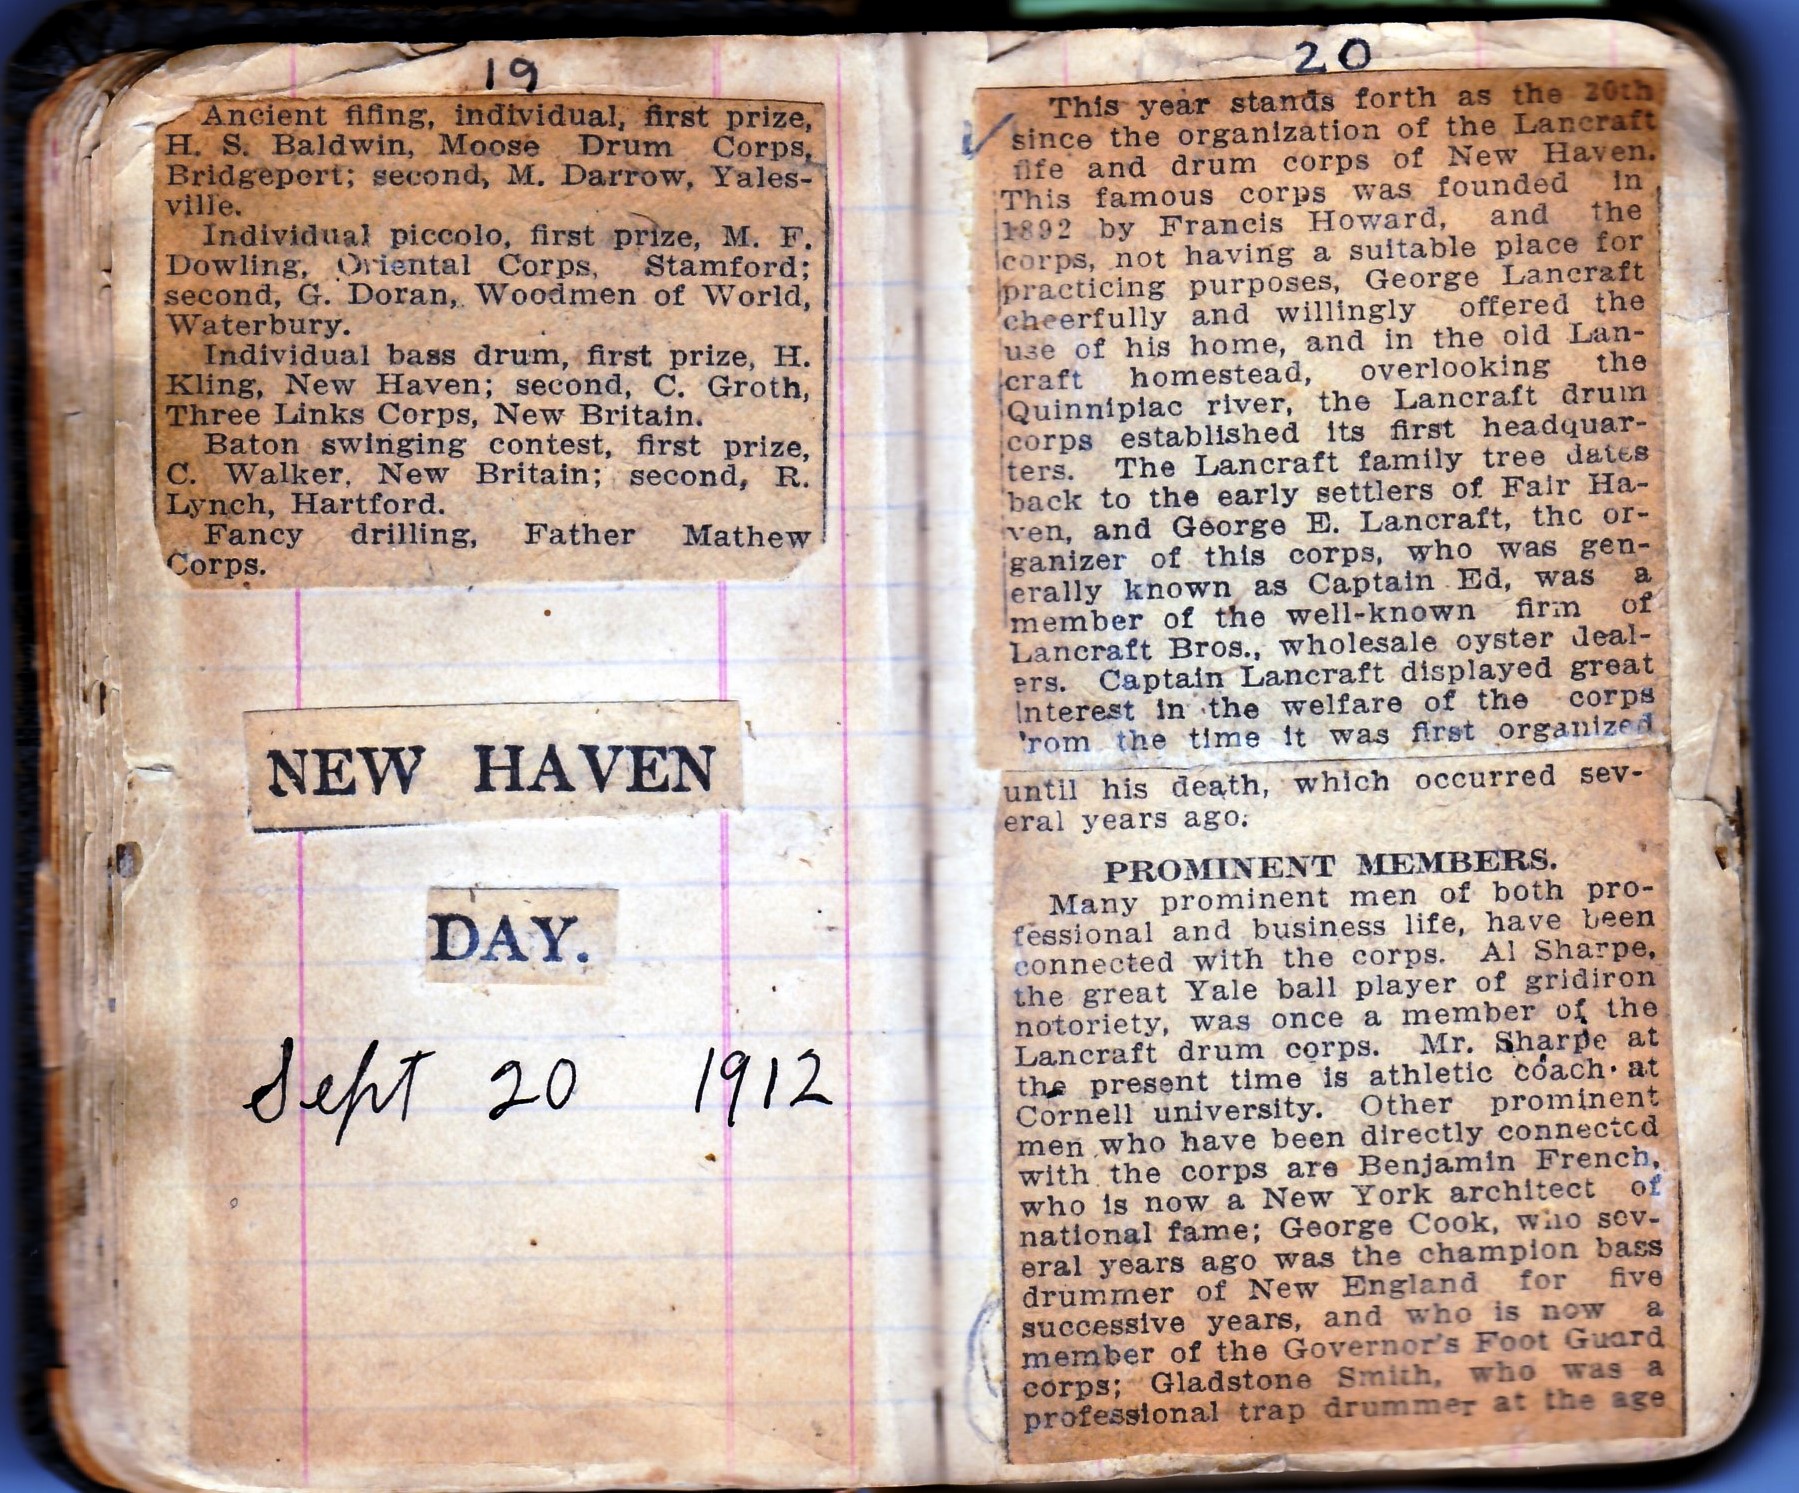 19
Ancient fifing, individual, first prize,
H. S. Baldwin, Moose Drum Corps,
Bridgeport; second, M. Darrow, Yales-
ville.
Individual piccolo, first prize, M. F.
Dowling, Oriental Corps, Stamford;
second, G. Doran, Woodmen of World,
Waterbury.
Individual bass drum, first prize, H.
Kling, New Haven; second, C. Groth,
Three Links Corps, New Britain.
Baton swinging contest, first prize,
C. Walker, New Britain; second, R.
Lynch, Hartford.
Fancy drilling, Father Mathew
Corps.
NEW HAVEN
DAY.
Sept 20 1912
20
This year stands forth as the 20th
since the organization of the Lancraft
fife and drum corps of New Haven.
This famous corps was founded in
1892 by Francis Howard, and the
corps, not having a suitable place for
practicing purposes, George Lancraft
cheerfully and willingly offered the
use of his home, and in the old Lan-
craft homestead, overlooking the
Quinnipiac river, the Lancraft drum
corps established its first headquar-
ters. The Lancraft family tree dates
back to the early settlers of Fair Ha-
ven, and George E. Lancraft, the or-
ganizer of this corps, who was gen-
erally known as Captain Ed, was a
member of the well-known firm of
Lancraft Bros., wholesale oyster deal-
ers. Captain Lancraft displayed great
interest in the welfare of the corps
'rom the time it was first organized
until his death, which occurred sev-
eral years ago.
PROMINENT MEMBERS.
Many prominent men of both pro-
fessional and business life, have been
connected with the corps. Al Sharpe,
the great Yale ball player of gridiron
notoriety, was once a member of the
Lancraft drum corps. Mr. Sharpe at
the present time is athletic coach at
Cornell university. Other prominent
men who have been directly connected
with the corps are Benjamin French,
who is now a New York architect of
national fame; George Cook, who sev-
eral years ago was the champion bass
drummer of New England for five
successive years, and who is now a
member of the Governor's Foot Guard
corps; Gladstone Smith, who was a
professional trap drummer at the age